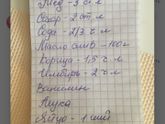 Мёд - 3 ст л
Сахар - 2 ст. л
Сода - 2/3 ч л
Масло слив - 100г
Корица - 1,5 ч л
Имбирь - 2 ч л
Ванилин
Мука
Яйцо - 1 шт